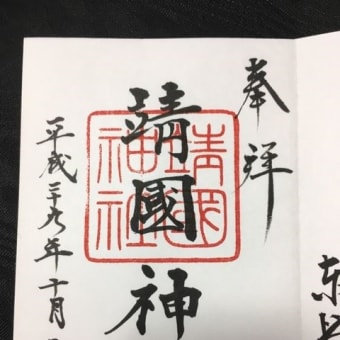 奉拝
靖國神
靖國神社
平成二十九年十月